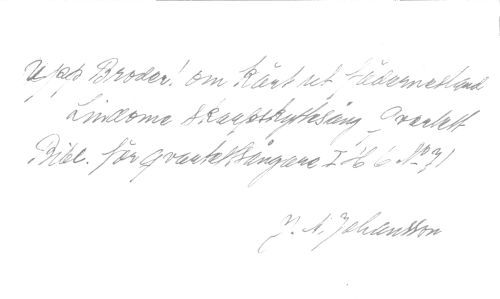 Upp Broder! om Kärt ert Fädernesland
Lindome Skarpskyttesång Qvartett
Bibl. för qvartettsångare I H 6 No 31
J. A. Johansson